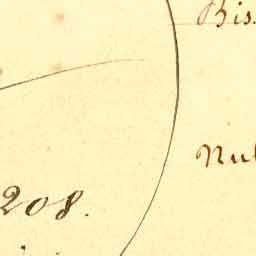 Bis
208.
Nul